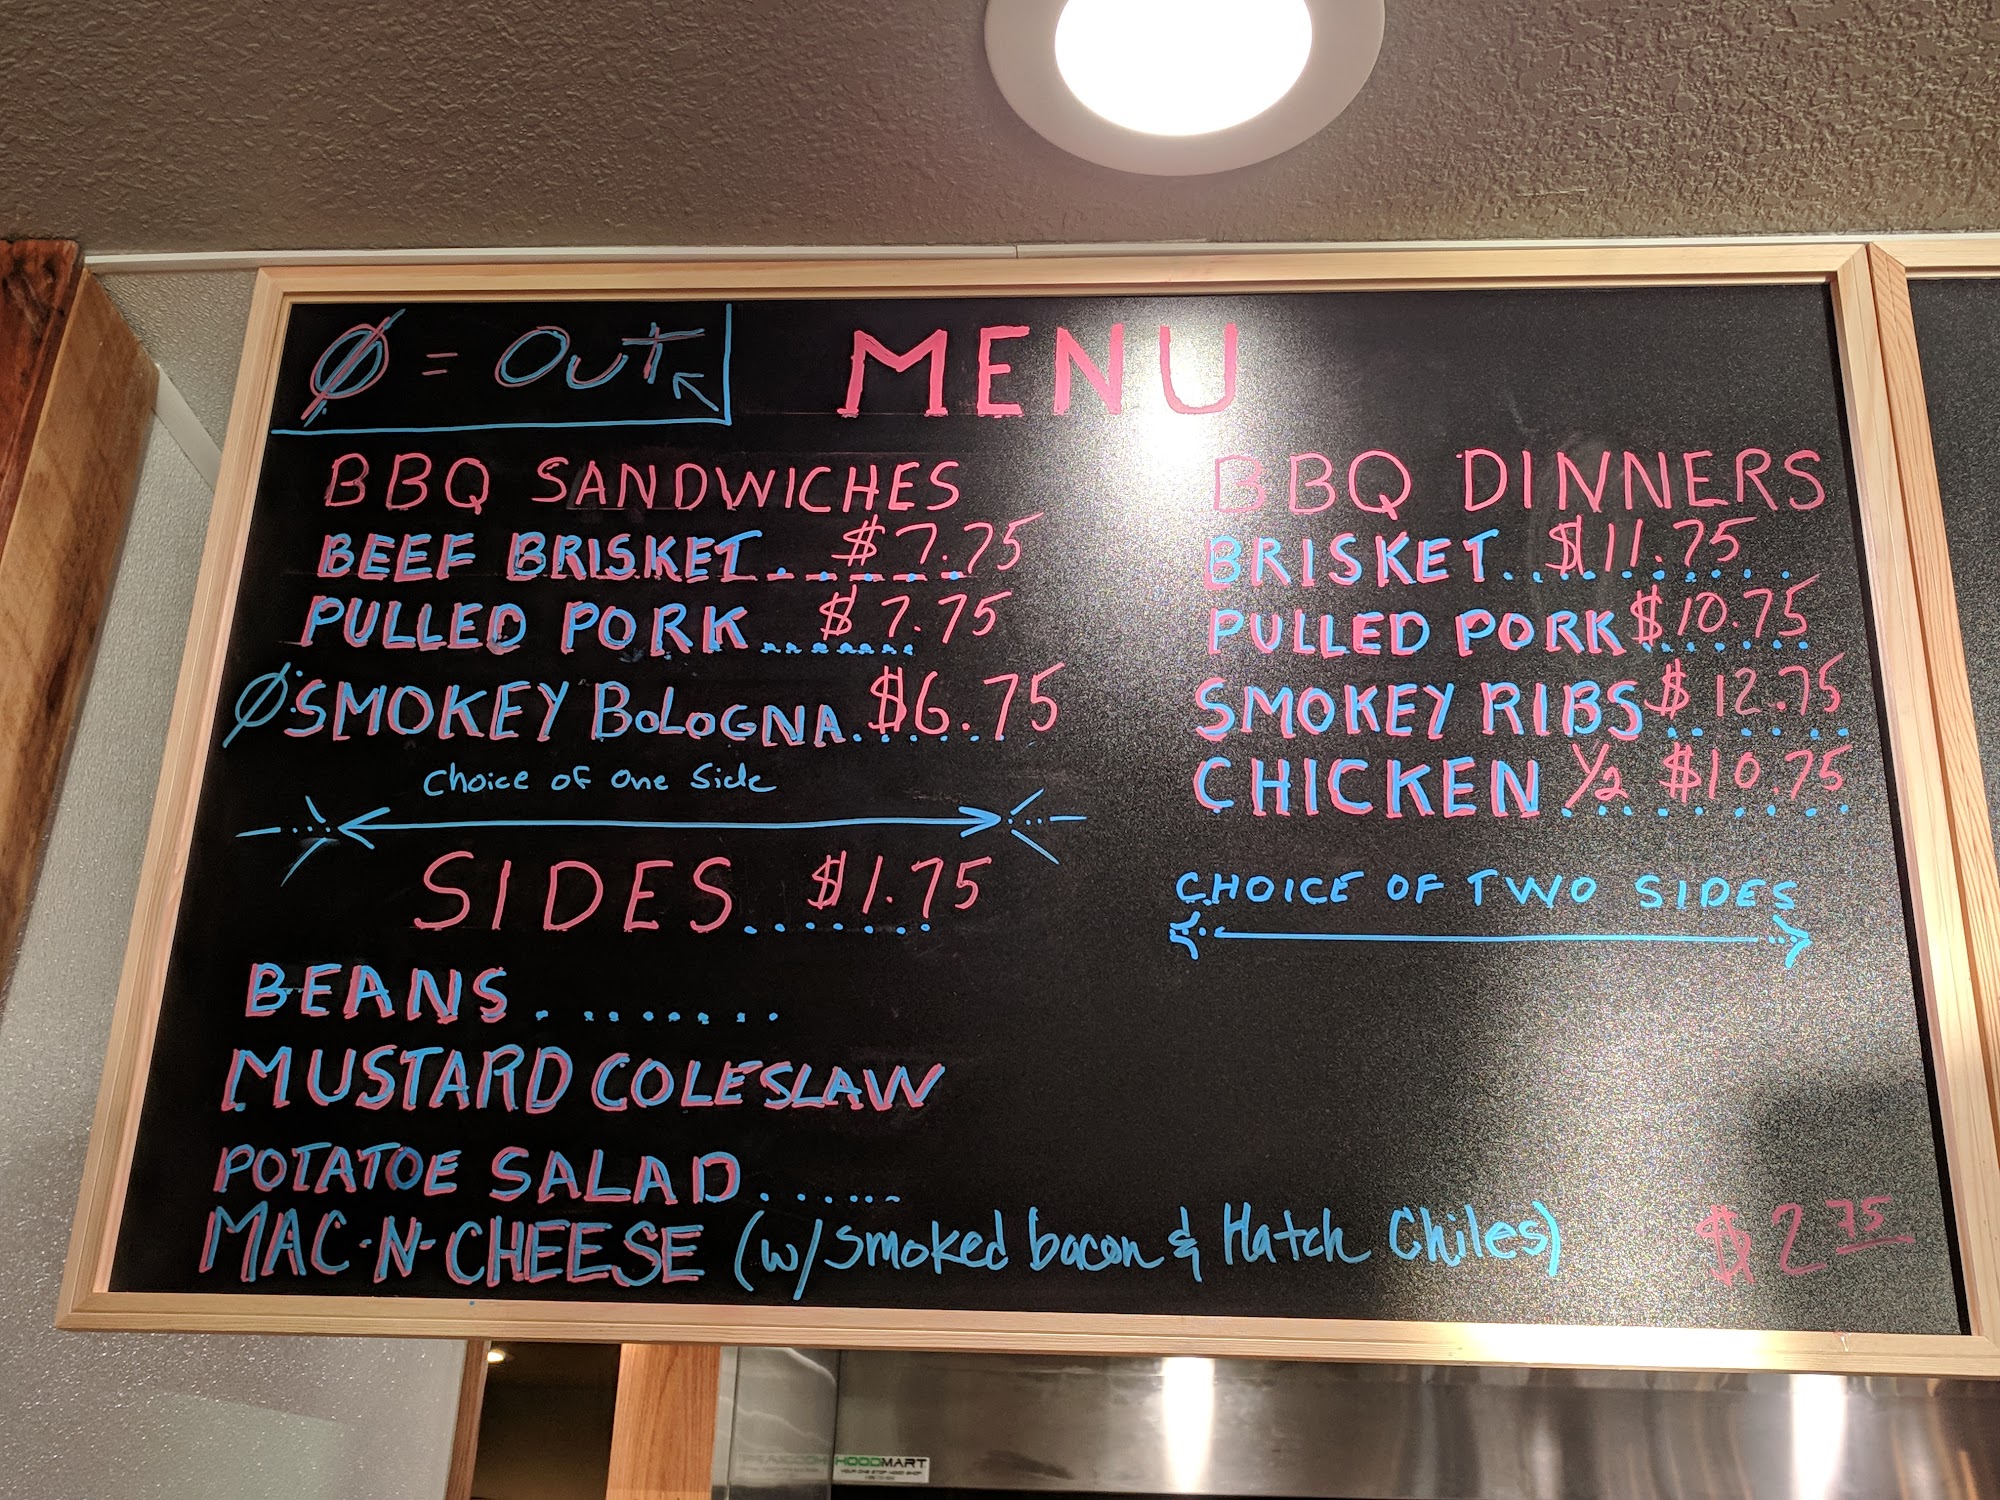 Ø = Out
MENU
BBQ SANDWICHES
BEEF BRISKET $7.75
PULLED PORK $7.75
Ø SMOKEY BOLOGNA $6.75
Choice of One Side
SIDES $1.75
BEANS
MUSTARD COLESLAW
POTATOE SALAD
MAC-N-CHEESE (w/ Smoked bacon & Hatch Chiles) $2.75
BBQ DINNERS
BRISKET $11.75
PULLED PORK $10.75
SMOKEY RIBS $12.75
CHICKEN 1/2 $10.75
CHOICE OF TWO SIDES
HOODMART